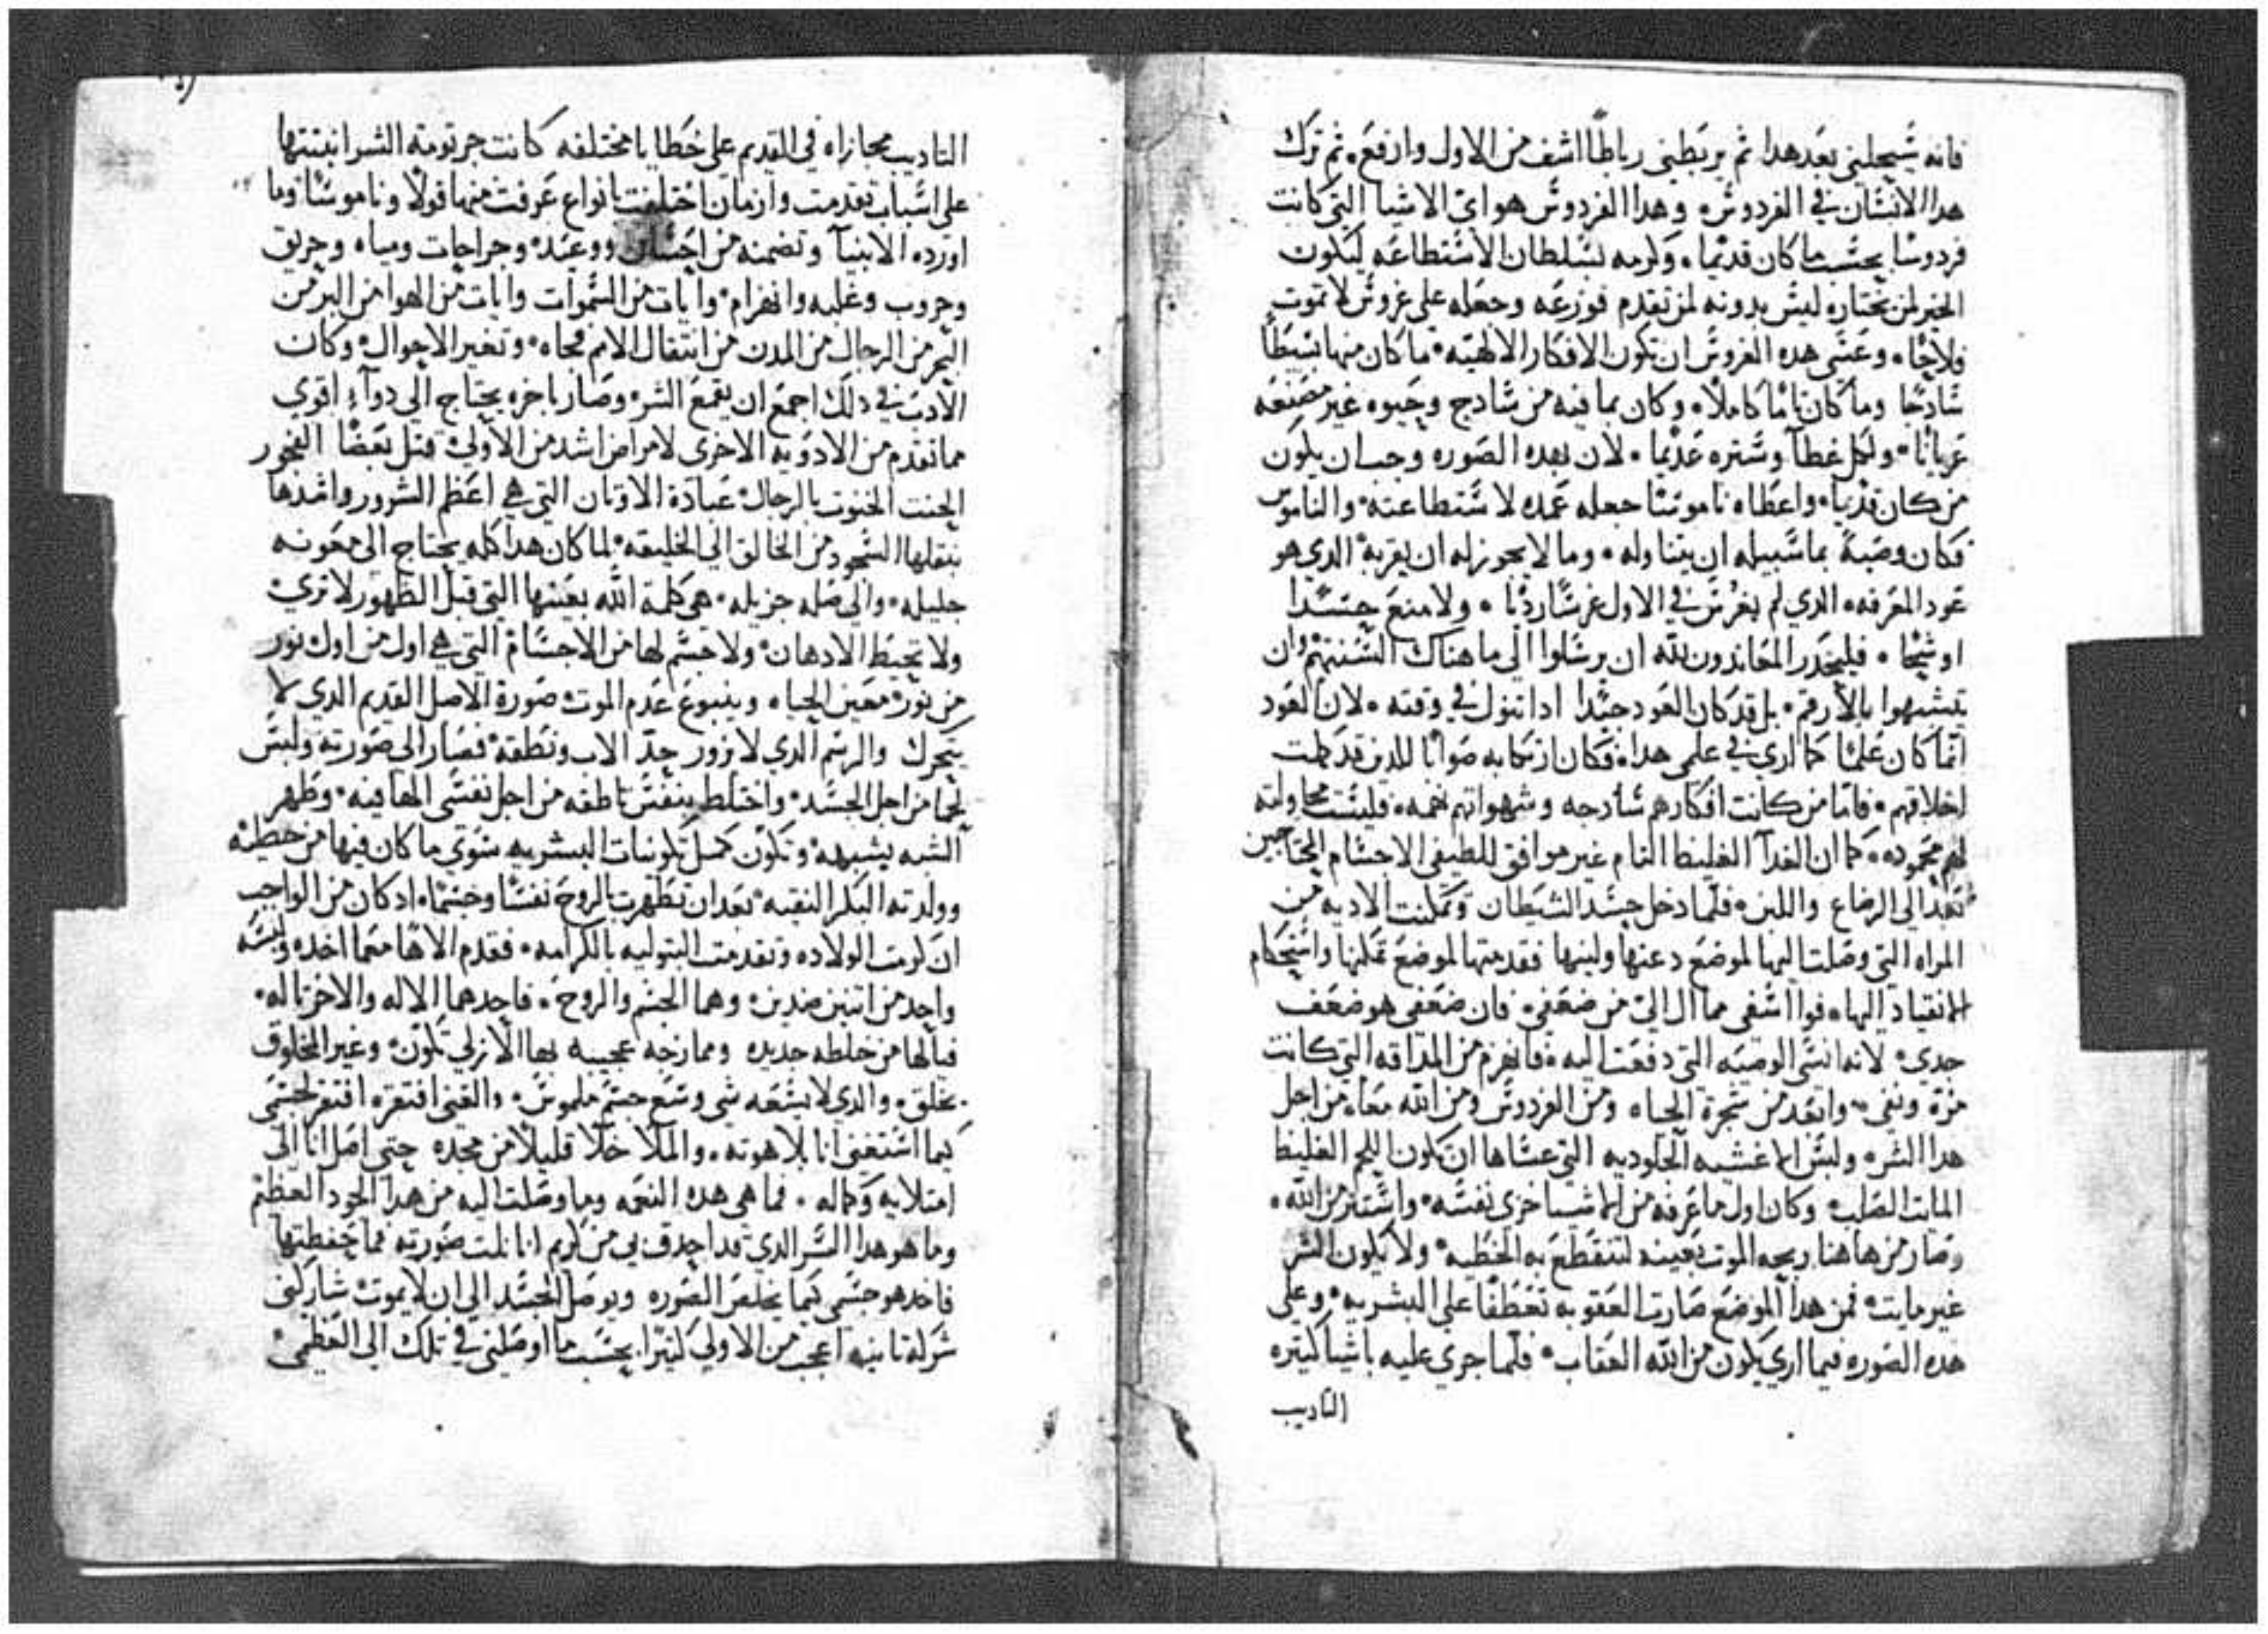 فانه سيحلني بعد هدا ثم يربطني رباطًا اشف من الاول وارفع. ثم ترك
هدا الانسان في الفردوس وهدا الفردوس هو اي الاشيا التي كانت
فردوسا بحسب ما كان قديما. وكرمه بسلطان الاستطاعه ليكون
الخير لمن يختاره ليس بدونه لمن تقدم فوزعه وجعله على غروس لا تموت
فلاحا. وعسى هده الغروس ان تكون الافكار الالهيه ما كان منها بسيطًا
سادجا وما كان تاما كاملا. وكان بما فيه من سادج وحيوه غير مصنعه
عريانا. ولكل غطآ وستره عديما. لان بهده الصوره وجب ان يكون
من كان قديما. واعطاه ناموسا جعله عمده لاستطاعته والناموس
فكان وصية بما سبيله ان يتناوله. وما لا يجوز له ان يقربه الدي هو
عود المعرفه. الدي لم يغرس في الاول غرسا رديا. ولا منع حسدا
او شحا. فليحدر المعاندون لله ان يرسلوا الي ما هناك السنتهم وان
يتشبهوا بالارقم. بل قد كان العود جيدا ادا تنول في وقته. لان العود
انما كان علما كما اري في علمي هدا. فكان ارتكابه صوابا للدين قد كملت
اخلاقهم. فاما من كانت افكارهم سادجه وشهواتهم نهمه. فليست محاولته
لهم محموده. كما ان الغدآ الغليظ التام غير موافق للطيفي الاجسام المحتاجين
بعد الي الرضاع واللبن. فلما دخل حسد الشيطان وتمكنت الاديه من
المراه التي وصلت اليها لموضع دعتها ولينها فقدمتها لموضع تمكنها واستحكام
الانقياد اليها. فوا اسفي مما ال الي من ضعفي. فان ضعفي هو ضعف
جدي. لانه انسي الوصيه التي دفعت اليه. فانهزم من المداقه التي كانت
مرة ونفي. وابعد من شجرة الحياه ومن الفردوس ومن الله معا. من اجل
هدا الشر. ولبس الاغشيه الجلوديه التي عساها ان تكون اللحم الغليظ
المايت الصلب. وكان اول ما عرفه من الاشيا خزي نفسه. واستتر من الله.
وصار من هاهنا ربحه الموت بعينه لتنقطع به الخطيه ولا يكون الشر
غير مايت. فمن هدا الموضع صارت العقوبه تعطفًا علي البشريه. وعلي
هده الصوره فيما اري يكون من الله العقاب. فلما جري عليه باشيا كتيره
التاديب
التاديب مجازاه في القديم علي خطايا مختلفه كانت جرتومة الشر انبتتها
علي اسباب تقدمت وازمان اختلفت بانواع عرفت منها قولا وناموسا وما
اورده الانبيآ وتضمنه من احسان ووعيد. وجراحات ومياه وحريق
وحروب وغلبه وانهزام. وايات من السموات وايات من الهوا من البر من
البحر من الرجال من المدن من انتقال الامم فجاه. وتغير الاحوال. وكان
الادب في دلك اجمع ان يقمع الشر. وصار باخره يحتاج الي دوآء اقوي
مما تقدم من الادويه الاخرى لامراض اشد من الاولي. قتل بعضا الفجور
الحنت الخنوت بالرجال عبادة الاوتان التي هي اعظم الشرور واشدها
بنقلها السجود من الخالق الي الخليقه. لما كان هدا كله يحتاج الى معونه
جليله. والي صله جزيله. هي كلمة الله بعينها التي قبل الظهور لا تري
ولا تحيط الادهان. ولا جسم لها من الاجسام التي هي اول من اول نور
من نور. معين الحياه وينبوع عدم الموت صورة الاصل القديم الدي لا
يتحرك والرسم الدي لا زور حد الاب ونطقه. فصار الى صورته ولبس
لحما من اجل الجسد. واختلط بنفس ناطقه من اجل نفسي الهافيه. وظهر
الشبه بشبهه. وتكون كمل تكوينات البشريه سوي ما كان فيها من خطيه
وولدته البكر النقيه. بعد ان تطهرت بالروح نفسا وجسما. اد كان من الواجب
ان كرمت الولاده وتقدمت البتوليه بالكرامه. فقدم الاها معما اخده ولبسه
واحد من اتنين ضدين. وهما الجسم والروح. فاحدهما الاله والاخر تاله.
فيا لها من خلطه جديده وممازجه عجيبه بها الازلي تكون. وغير المخلوق
يخلق. والدي لا يسعه شي وسع جسم ملموس. والغني افتقر. افتقر لجسمي
كيما استغني انا بلاهوته. والملا خلا قليلا من مجده حتي اصل انا الى
امتلايه وكماله. فما هي هده النعمه وما وصلت اليه من هدا الجود العظم
وما هو هدا السر الدي قد احدق بي من كريم انا نلت صورته فما حفظتها
فاخد هو جسمي كيما يخلص الصوره ويوصل الجسد الي ان لا يموت شاركني
شركة تانيه اعجب من الاولي كتيرا. بحسب ما اوصلني في تلك الي العظمي